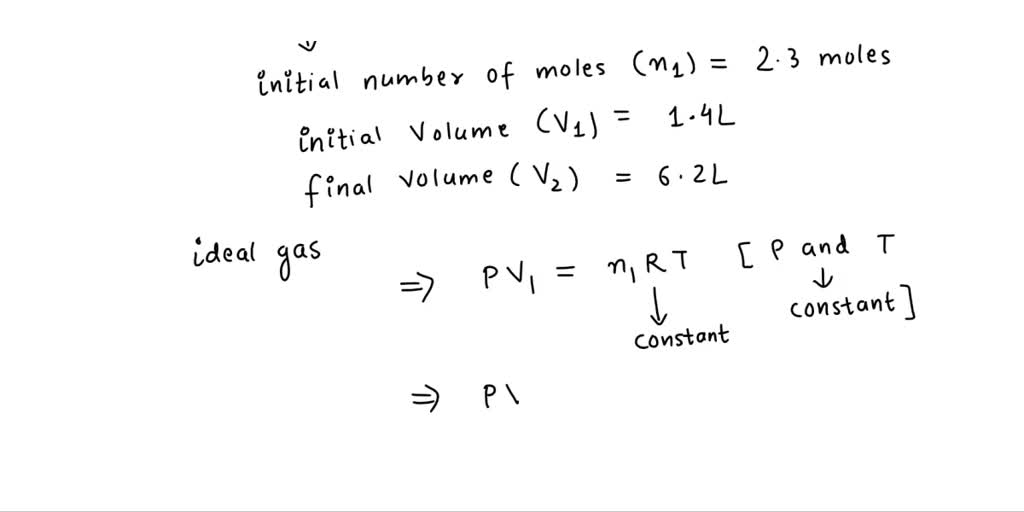 initial number of moles (n₁) = 2.3 moles
initial Volume (V₁) = 1.4L
final volume (V₂) = 6.2L
ideal gas
⇒ PV₁ = n₁RT [P and T
↓ constant
↓ constant]
⇒ P\